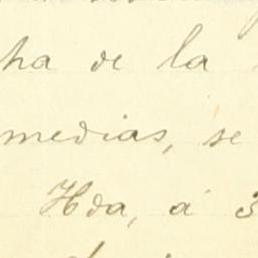 ha de la
medias, se
Hda, á 3